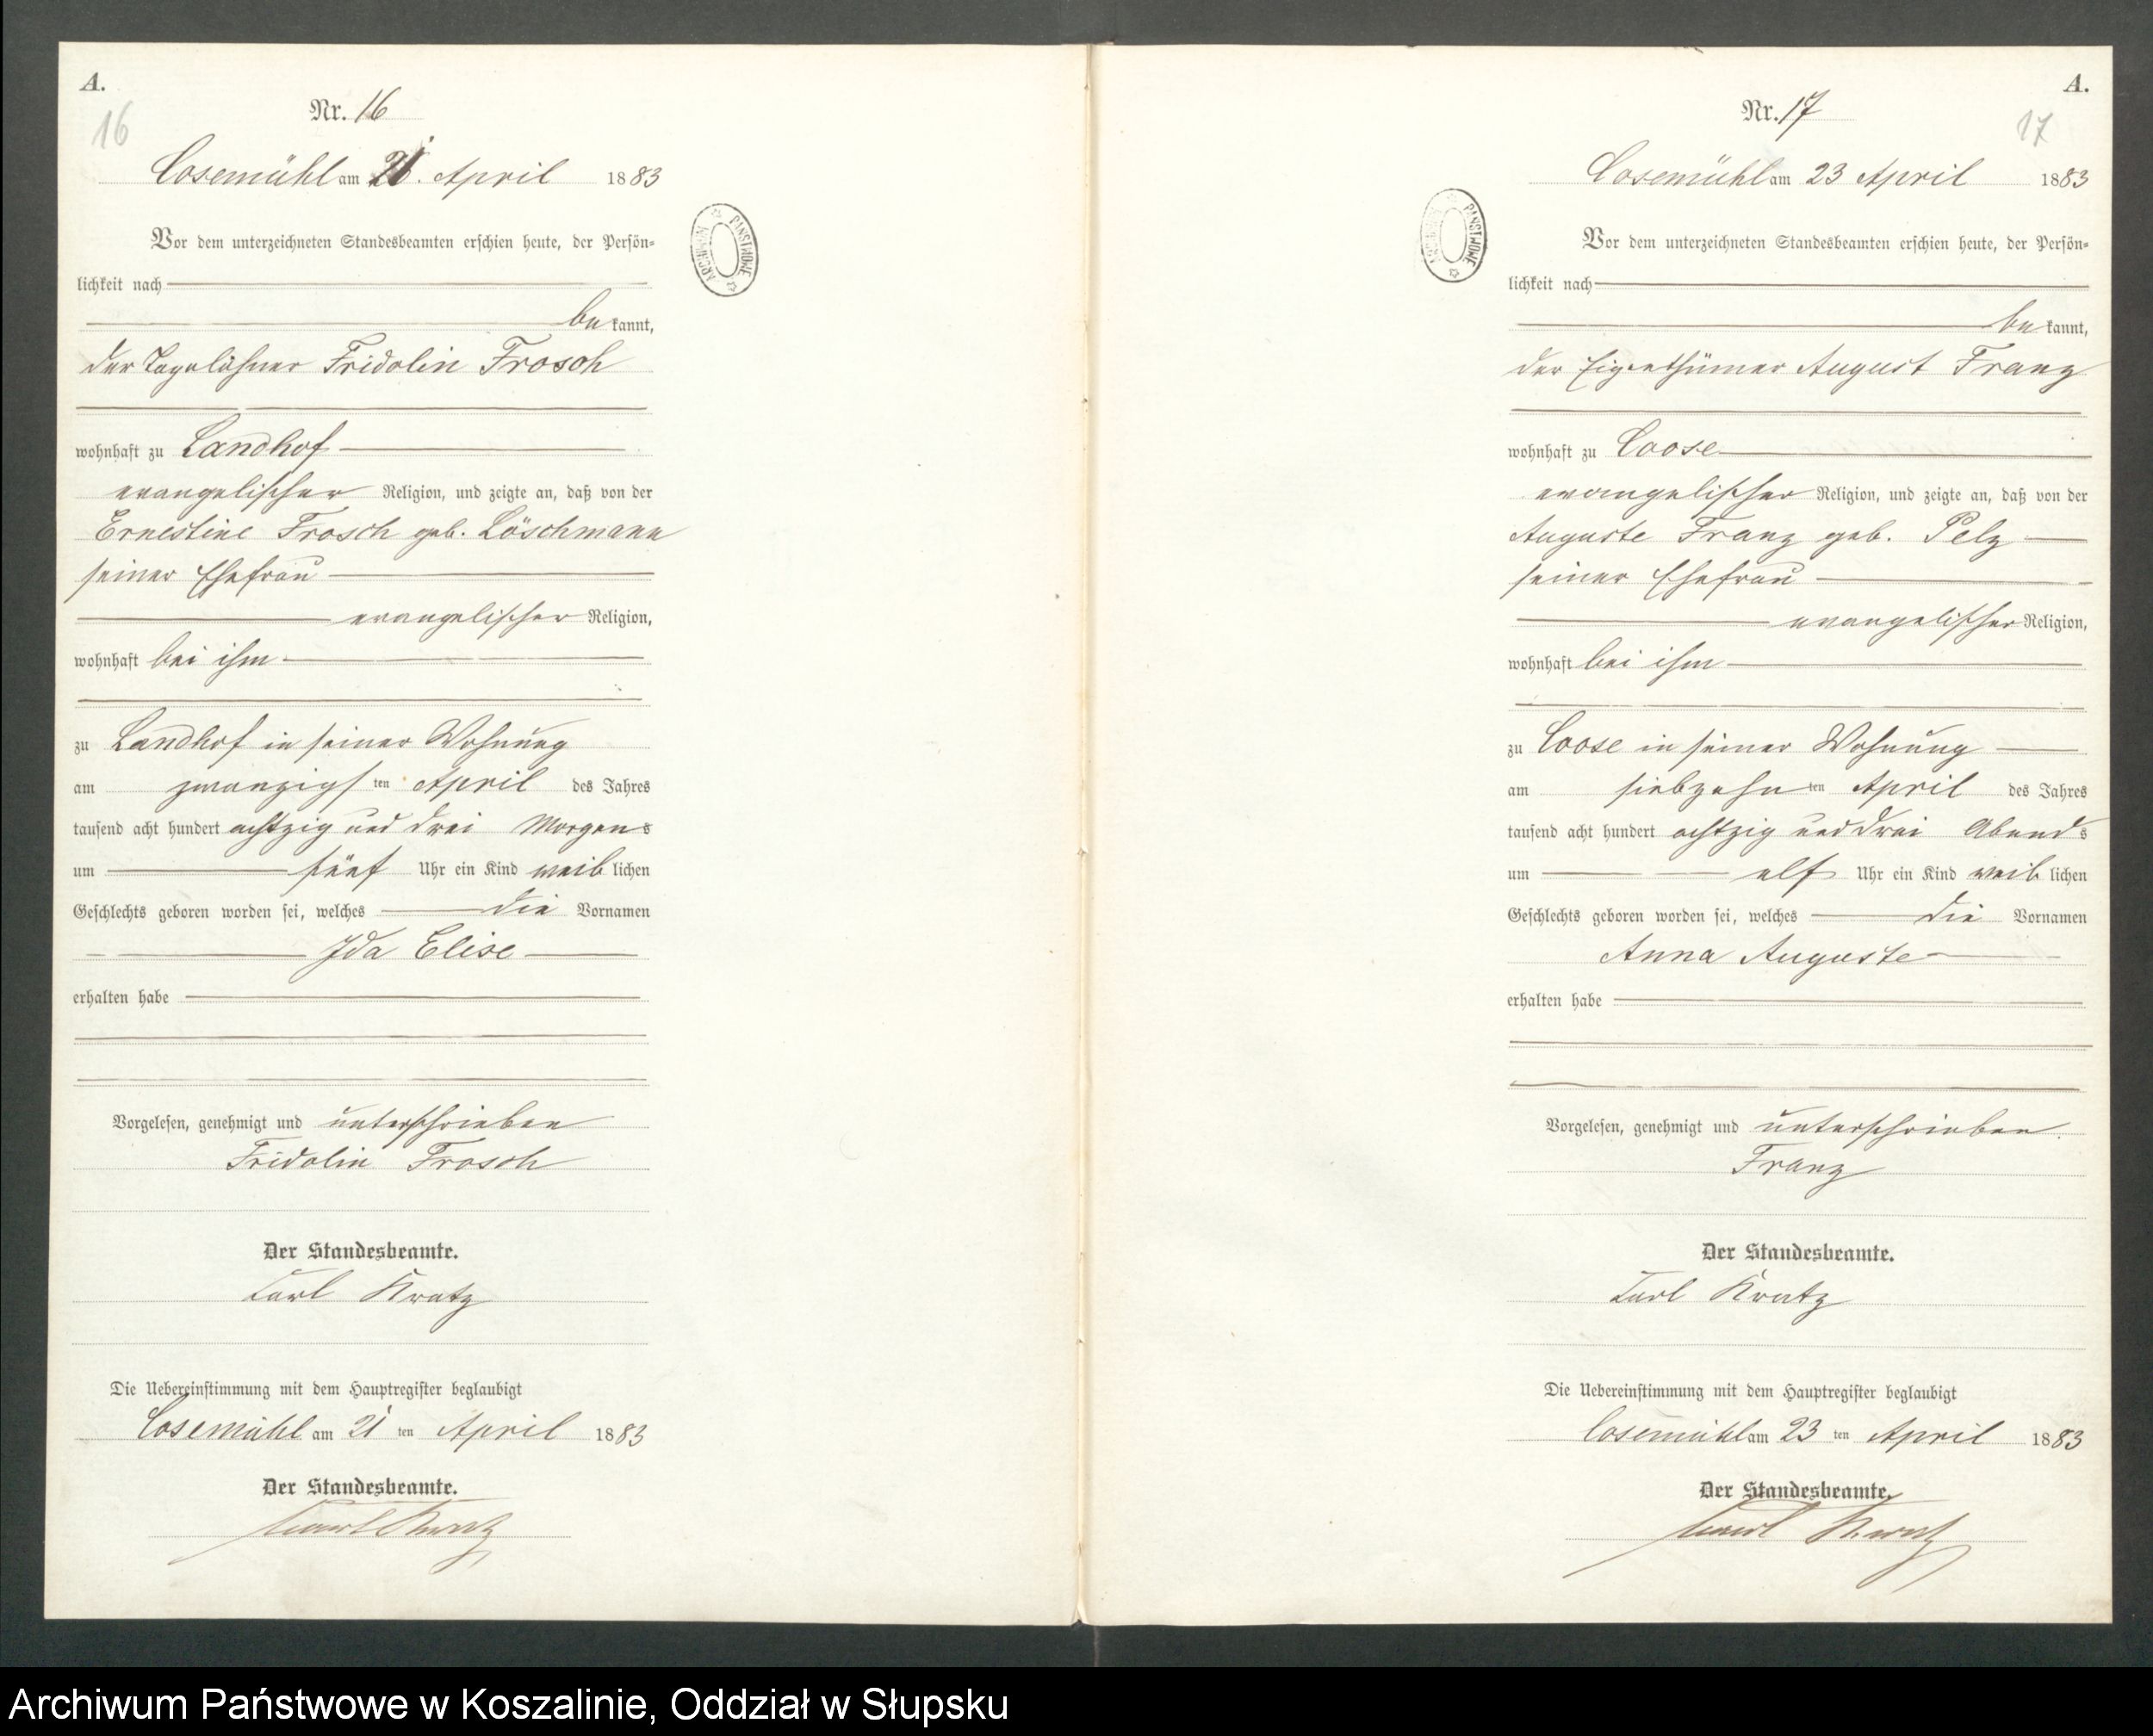 A.
16
Nr. 16
Cosemühl am 21. April 1883
Vor dem unterzeichneten Standesbeamten erschien heute, der Persön=
lichkeit nach
be kannt,
der Tagelöhner Fridolin Frosch
wohnhaft zu Landhof
evangelischer Religion, und zeigte an, daß von der
Ernestine Frosch geb. Löschmann
seiner Ehefrau
evangelischer Religion,
wohnhaft bei ihm
zu Landhof in seiner Wohnung
am zwanzigs ten April des Jahres
tausend acht hundert achtzig und drei Morgens
um fünf Uhr ein Kind weib lichen
Geschlechts geboren worden sei, welches die Vornamen
Ida Elise
erhalten habe
Vorgelesen, genehmigt und unterschrieben
Fridolin Frosch
Der Standesbeamte.
Carl Kratz
Die Uebereinstimmung mit dem Hauptregister beglaubigt
Cosemühl am 21 ten April 1883
Der Standesbeamte.
Carl Kratz
ARCHIWUM PAŃSTWOWE
A.
17
Nr. 17
Cosemühl am 23 April 1883
Vor dem unterzeichneten Standesbeamten erschien heute, der Persön=
lichkeit nach
be kannt,
der Eigenthümer August Franz
wohnhaft zu Coose
evangelischer Religion, und zeigte an, daß von der
Auguste Franz geb. Pelz
seiner Ehefrau
evangelischer Religion,
wohnhaft bei ihm
zu Coose in seiner Wohnung
am siebzehn ten April des Jahres
tausend acht hundert achtzig und drei Abends
um elf Uhr ein Kind weib lichen
Geschlechts geboren worden sei, welches die Vornamen
Anna Auguste
erhalten habe
Vorgelesen, genehmigt und unterschrieben.
Franz
Der Standesbeamte.
Carl Kratz
Die Uebereinstimmung mit dem Hauptregister beglaubigt
Cosemühl am 23 ten April 1883
Der Standesbeamte.
Carl Kratz
ARCHIWUM PAŃSTWOWE
Archiwum Państwowe w Koszalinie, Oddział w Słupsku